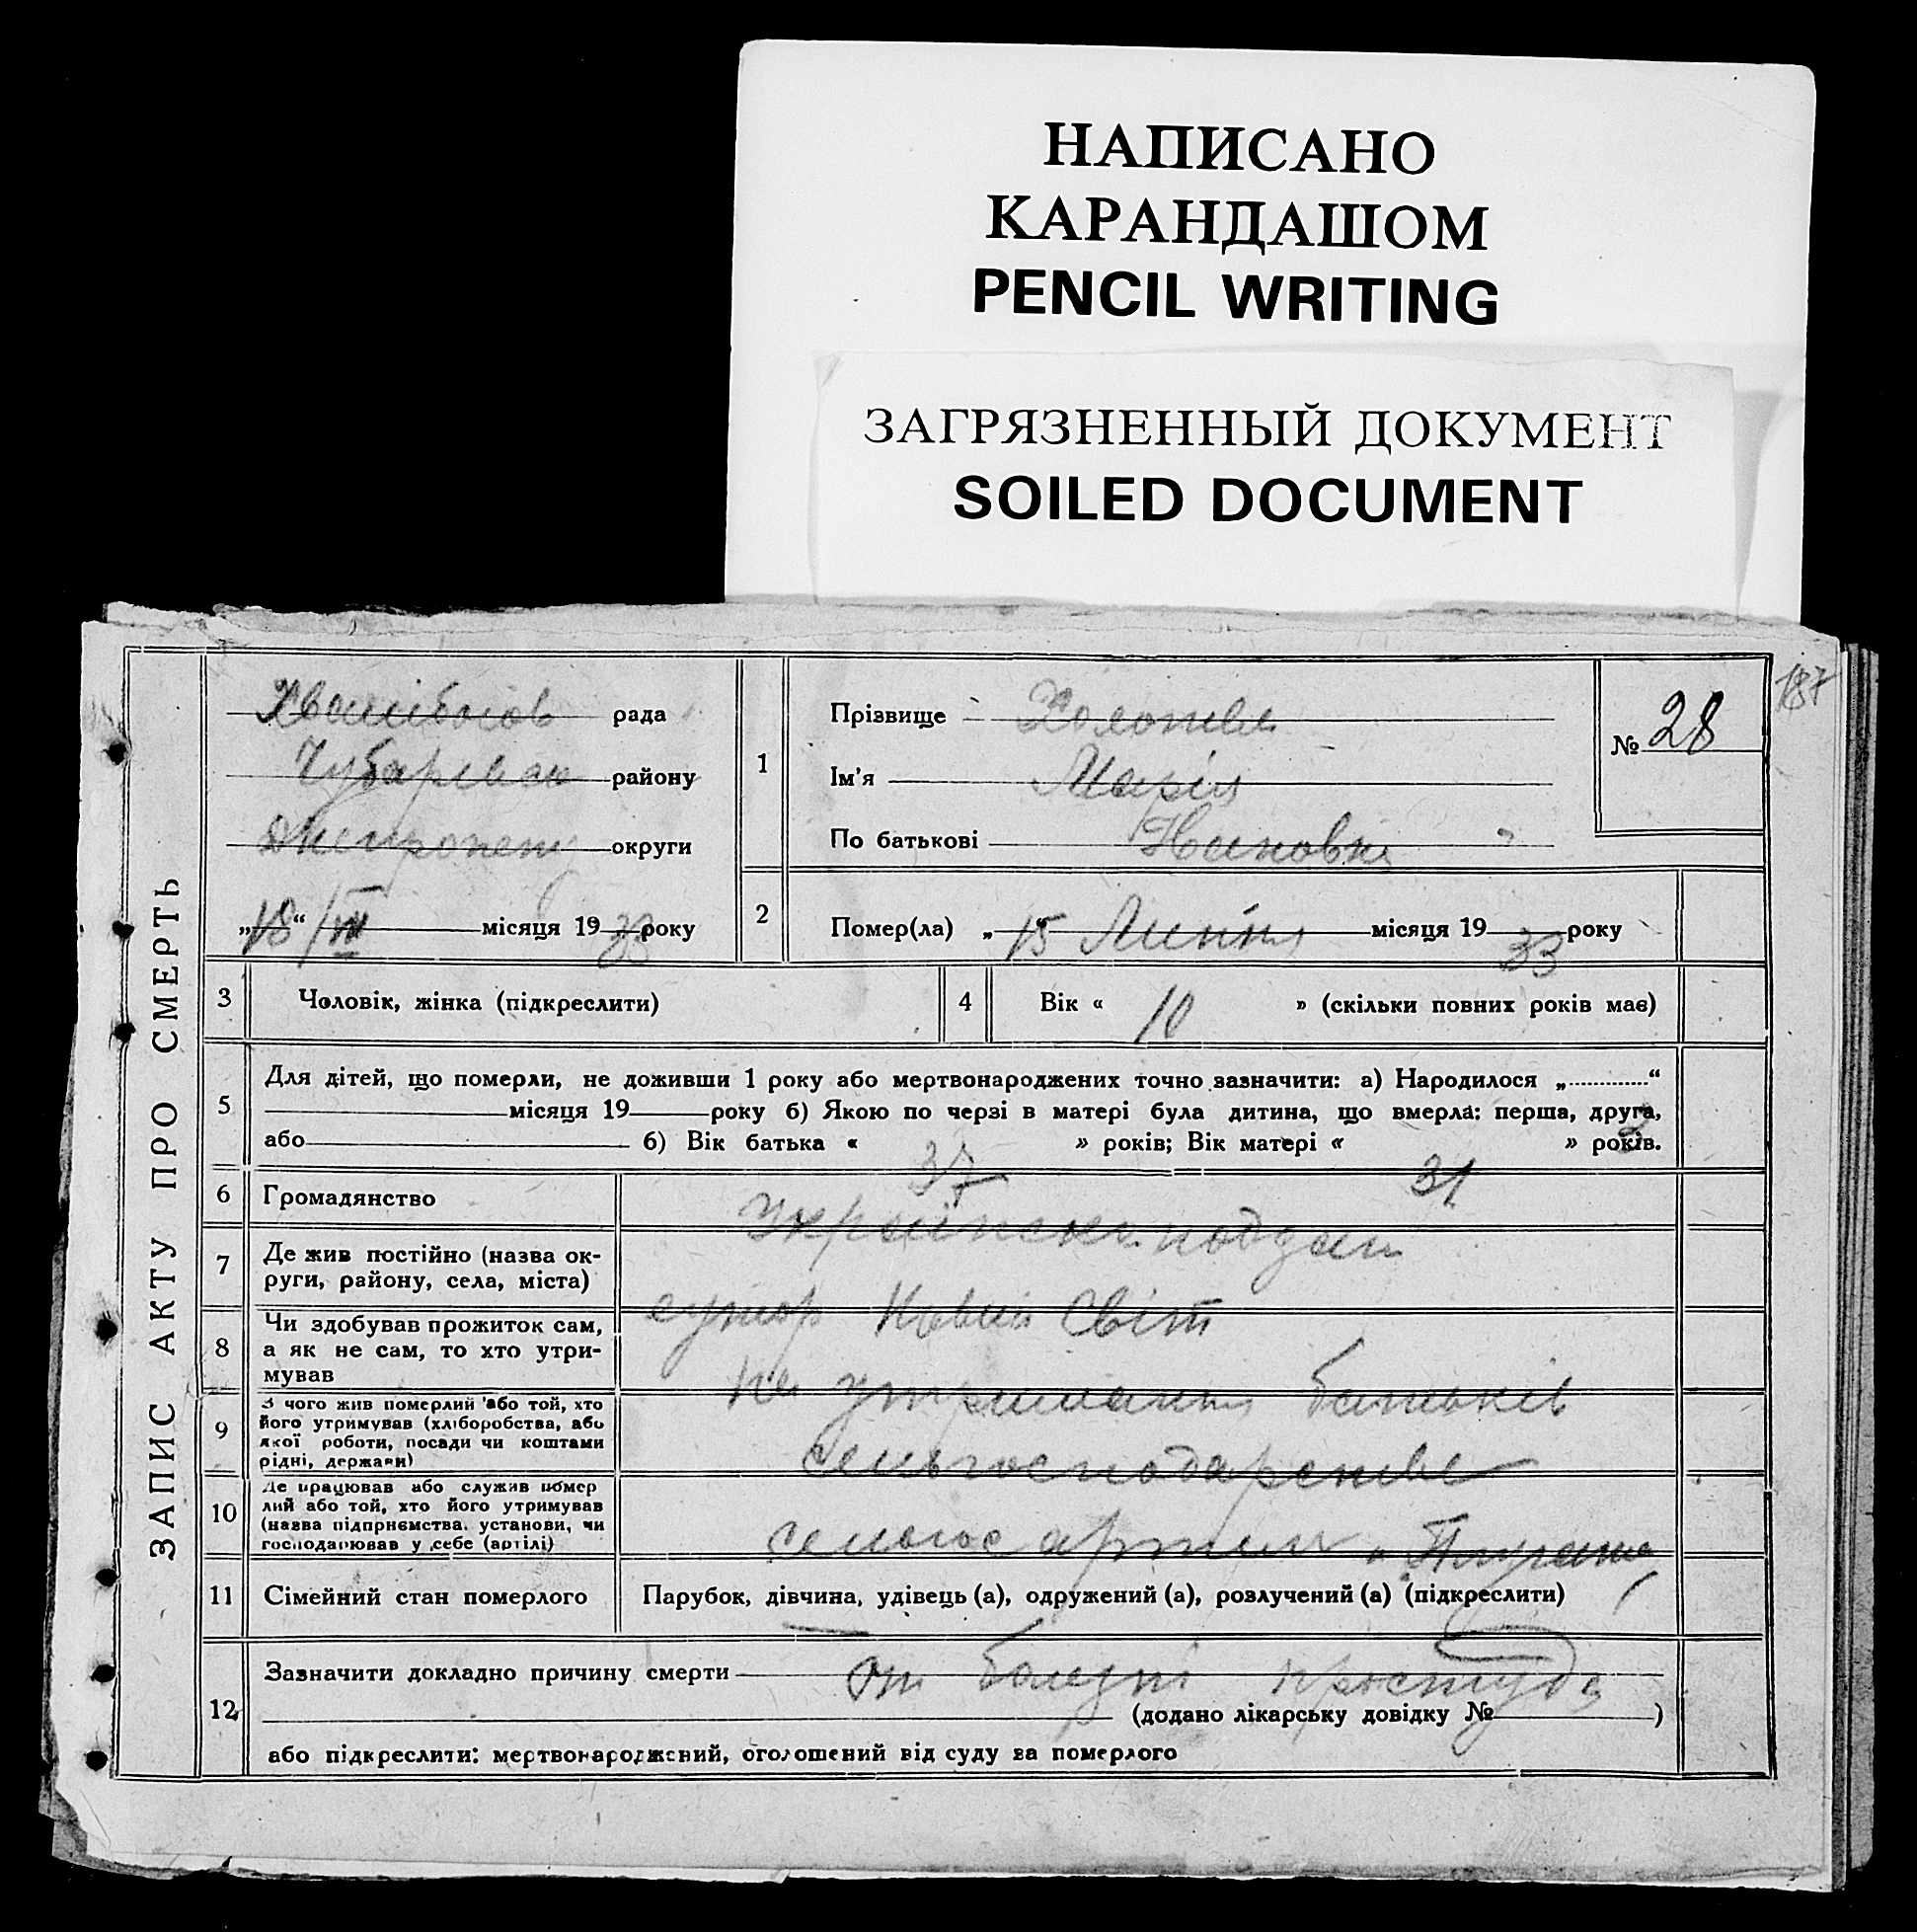 НАПИСАНО
КАРАНДАШОМ
PENCIL WRITING
ЗАГРЯЗНЕННЫЙ ДОКУМЕНТ
SOILED DOCUMENT
187
ЗАПИС АКТУ ПРО СМЕРТЬ
рада
району
округи
„18“/VII місяця 1933 року
1
Прізвище
Ім'я Марія
По батькові
№ 28
2
Помер(ла) „15 Липня місяця 1933 року
3 Чоловік, жінка (підкреслити)
4 Вік « 10 » (скільки повних років має)
5 Для дітей, що померли, не доживши 1 року або мертвонароджених точно зазначити: а) Народилося „ “
місяця 19 року б) Якою по черзі в матері була дитина, що вмерла: перша, друга,
або б) Вік батька « 37 » років; Вік матері « 31 » років.
6 Громадянство
7 Де жив постійно (назва ок-
руги, району, села, міста)
хутор Новий Світ
8 Чи здобував прожиток сам,
а як не сам, то хто утри-
мував
на утриманню батьків
9 З чого жив померлий або той, хто
його утримував (хліборобства, або
якої роботи, посади чи коштами
рідні, держави)
10 Де працював або служив помер
лий або той, хто його утримував
(назва підприємства, установи, чи
господарював у себе (артілі)
11 Сімейний стан померлого
Парубок, дівчина, удівець (а), одружений (а), розлучений (а) (підкреслити)
12 Зазначити докладно причину смерти От болезні простуда
(додано лікарську довідку № )
або підкреслити: мертвонароджений, оголошений від суду за померлого